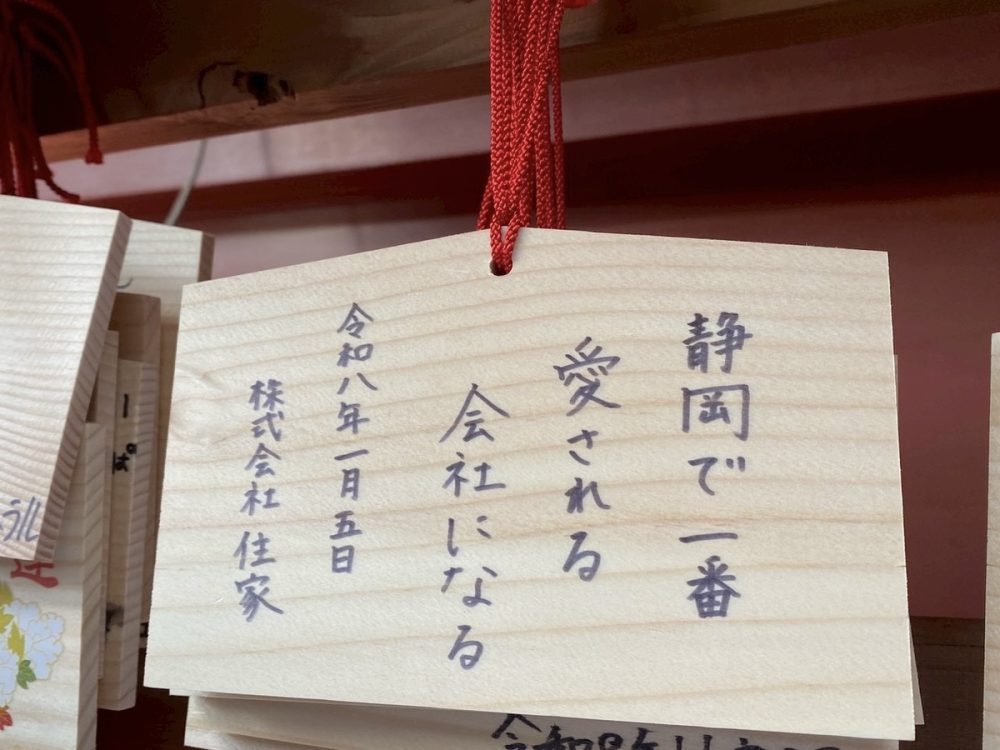 静岡で一番
愛される
会社になる
令和八年一月五日
株式会社 住家